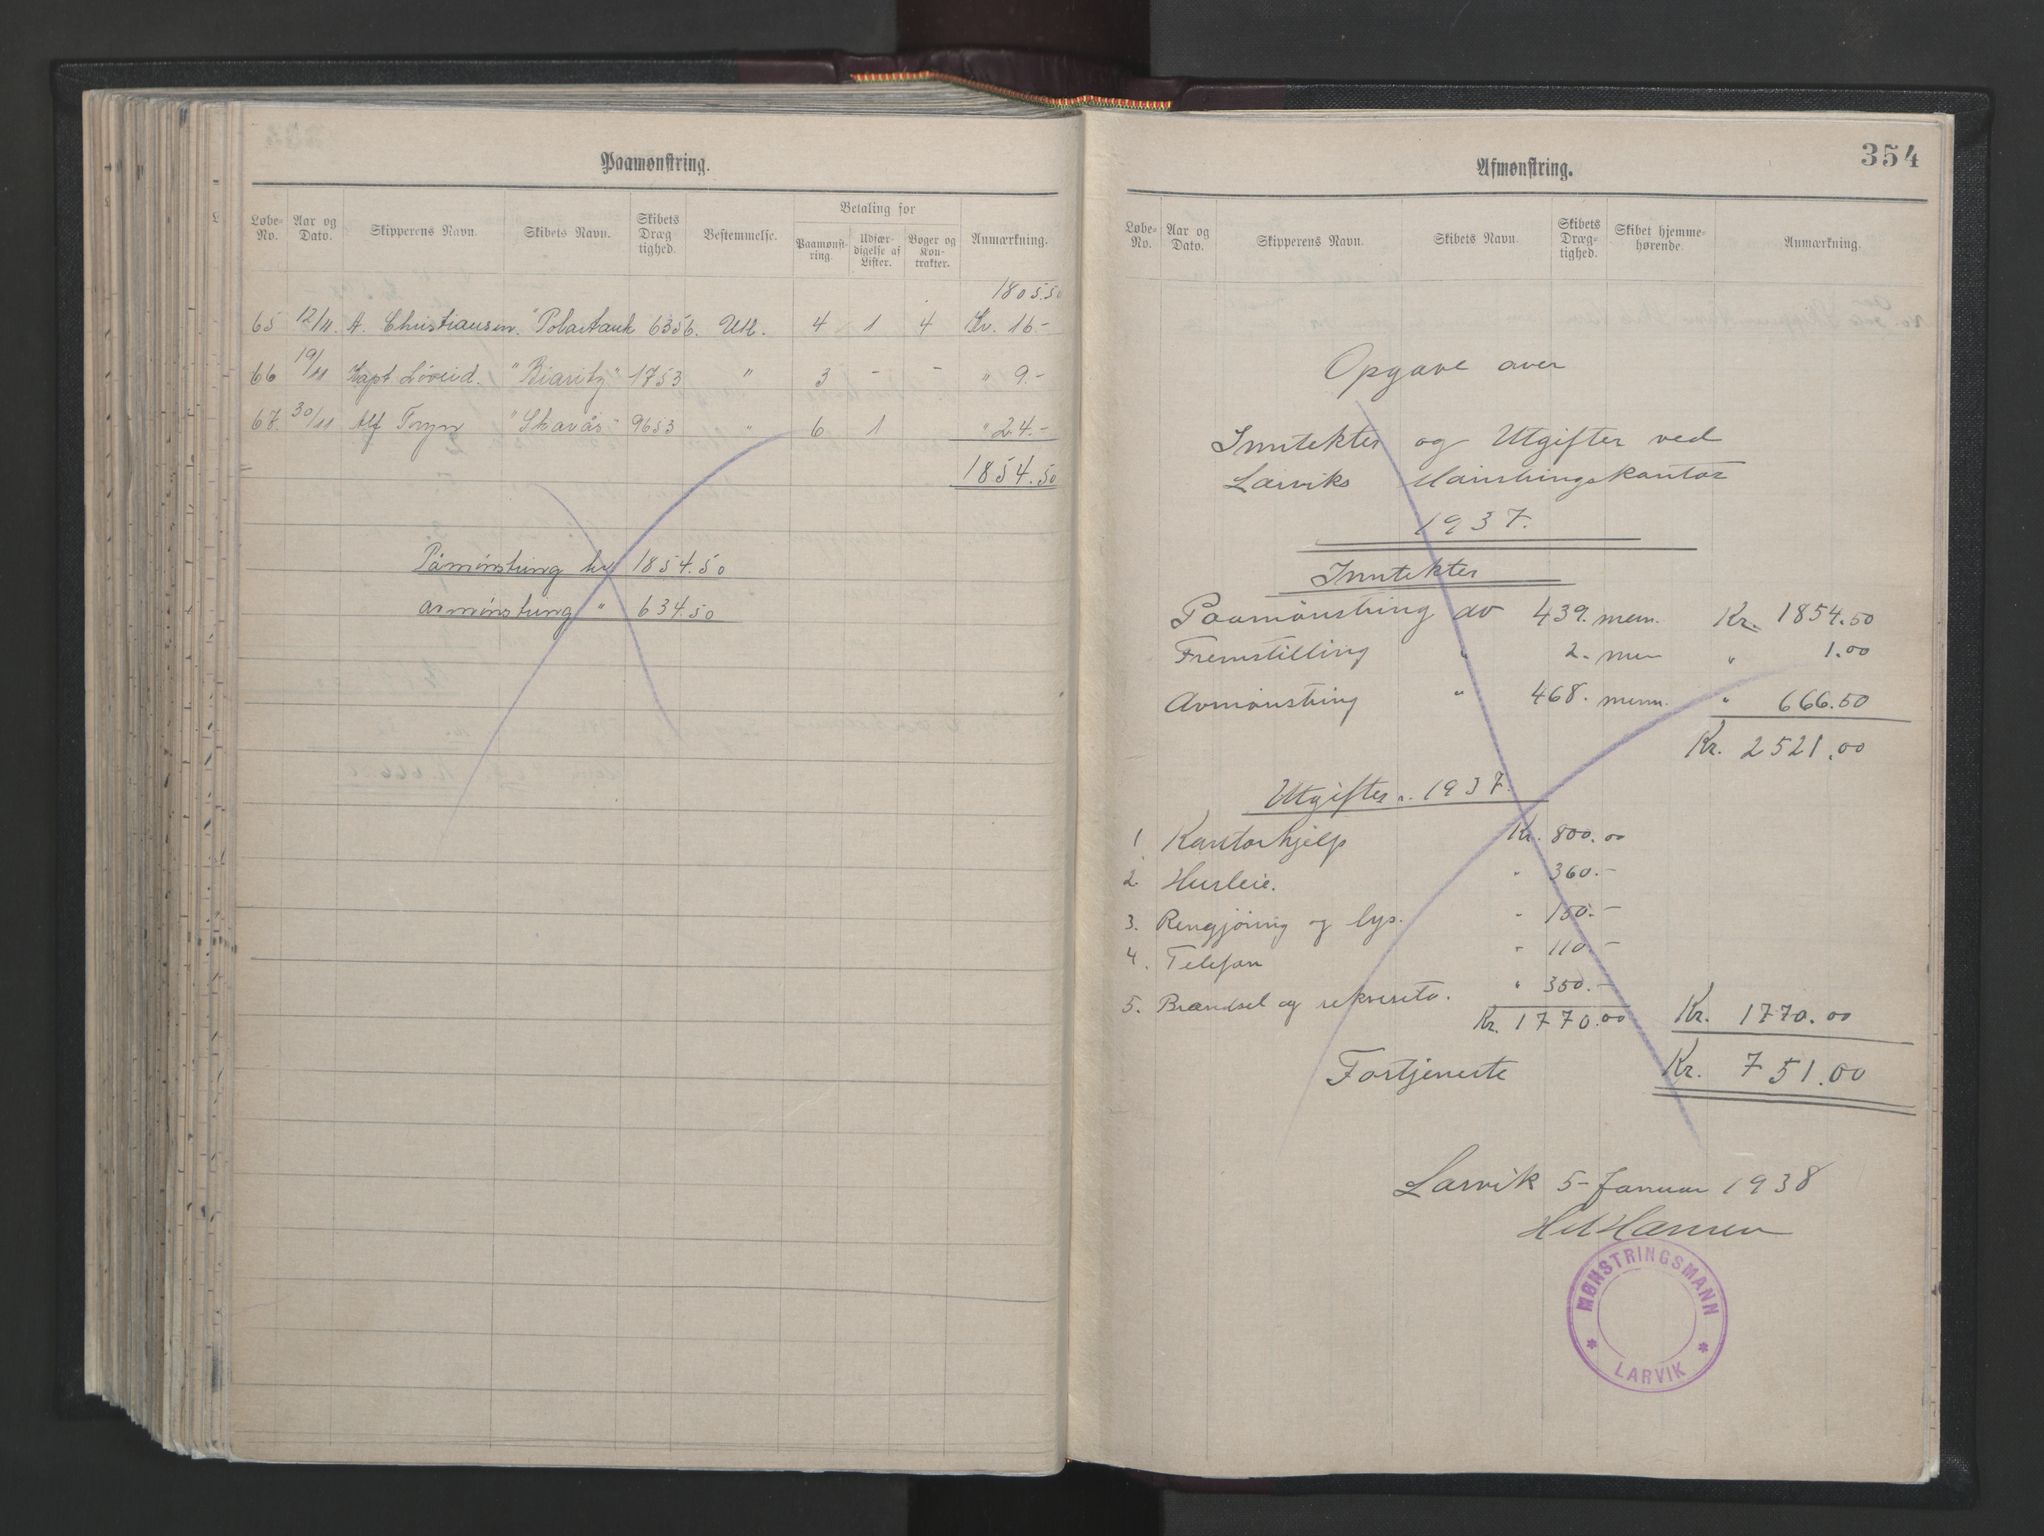 Paamønstring.
Løbe-No. Aar og Dato. Skipperens Navn. Skibets Navn. Skibets Dræg-tighed. Bestemmelse. Betaling for Paamønst-ring. Udfær-digelse af Lister. Bøger og Kon-trakter. Anmærkning.
1805.50
65 12/11. A. Christiansen. "Polartank 6356. Utl. 4 1 4 Kr. 16.-
66 19/11 Kapt. Løveid. "Biaritz" 1753 " 3 - - " 9.-
67. 30/11 Alf "Skavås" 9653 " 6 1 " 24.-
1854.50
Påmønstring kr 1854.50
avmønstring " 634.50
354
Afmønstring.
Løbe-No. Aar og Dato. Skipperens Navn. Skibets Navn. Skibets Dræg-tighed. Skibet hjemme-hørende. Anmærkning.
Opgave over
Inntekter og Utgifter ved
Larviks Mønstringskontor
1937.
Inntekter
Paamønstring av 439. menn. Kr. 1854.50
Fremstilling " 2. menn " 1.00
Avmønstring " 468. menn. " 666.50
Kr. 2521.00
Utgifter 1937.
1. Kontorhjelp Kr. 800.00
2 Husleie. " 360.-
3. Rengjøring og lys. " 150.-
4. Telefon " 110.-
5. Brændsel og rekvisita. " 350.-
Kr. 1770.00 Kr. 1770.00
Fortjeneste Kr. 751.00
Larvik 5-Januar 1938
Hansen
MØNSTRINGSMANN
* LARVIK *